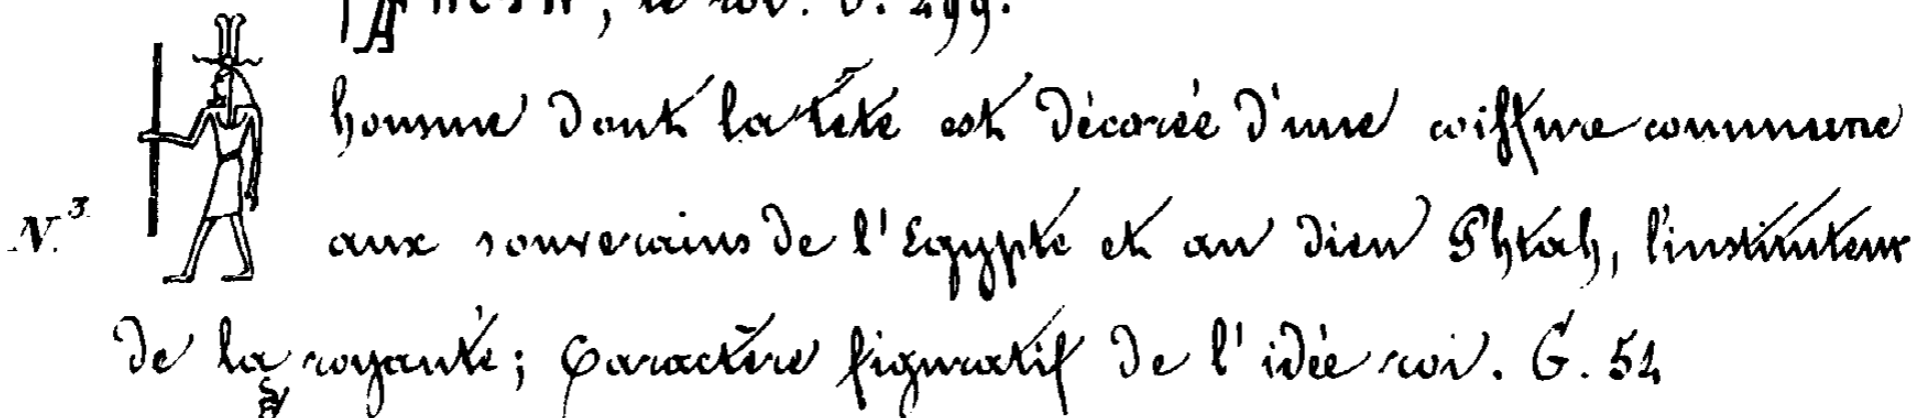 , le roi. G. 499.
homme dont la tête est décorée d'une coiffure commune
N.º 3. aux souverains de l'Egypte et au dieu Phtah, l'instituteur
de la royauté; Caractère figuratif de l'idée roi. G. 54